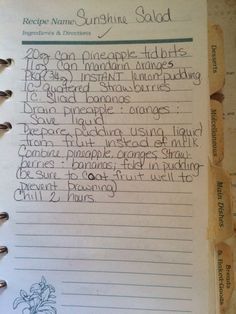 Recipe Name: Sunshine Salad
Ingredients & Directions
20oz can pineapple tidbits
11oz can mandarin oranges
Pkg (3¾) INSTANT lemon pudding
1C quartered strawberries
1C. Sliced bananas
Drain pineapple : oranges :
save liquid
Prepare pudding using liquid
from fruit instead of milk
Combine pineapple, oranges, straw-
berries : bananas; fold in pudding-
(be sure to coat fruit well to
prevent browning)
Chill 2 hours.
Desserts
Miscellaneous
Main Dishes
Breads
& Baked Goods